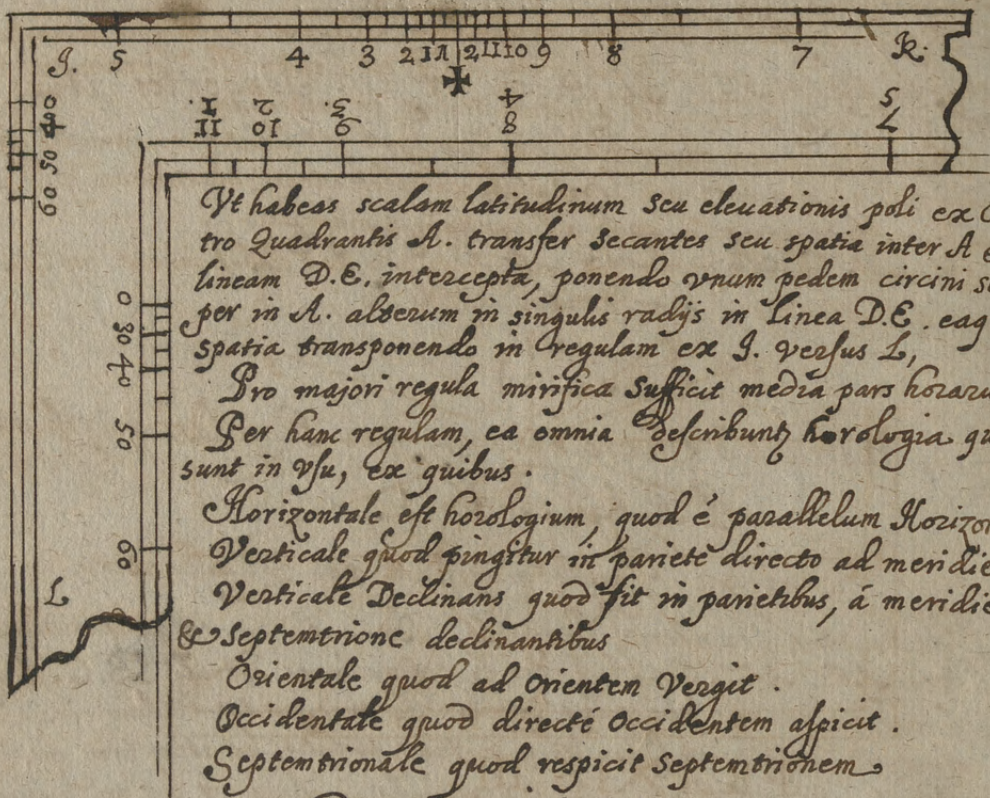 J. 5 4 3 2 1 12 11 10 9 8 7 K.
1. 2 3. 4 5
11 10 9 8 7
0 30 40 50 60
Vt habeas scalam latitudinum seu eleuationis poli ex
tro Quadrantis A. transfer secantes seu spatia inter A
lineam D.E. intercepta, ponendo vnum pedem circini
per in A. alterum in singulis radijs in linea D.E. eaq
spatia transponendo in regulam ex J. versus L,
Pro majori regula mirifica sufficit media pars horaru
Per hanc regulam, ea omnia describuntz horologia qu
sunt in vsu, ex quibus.
Horizontale est horologium, quod é parallelum Horizon
Verticale quod pingitur in pariete directo ad meridie
Verticale Declinans quod fit in parietibus, á meridie
& Septemtrione declinantibus
Orientale quod ad Orientem Vergit.
Occidentale quod directé Occidentem aspicit.
Septemtrionale quod respicit Septemtrionem
0
30
40
50
60
L